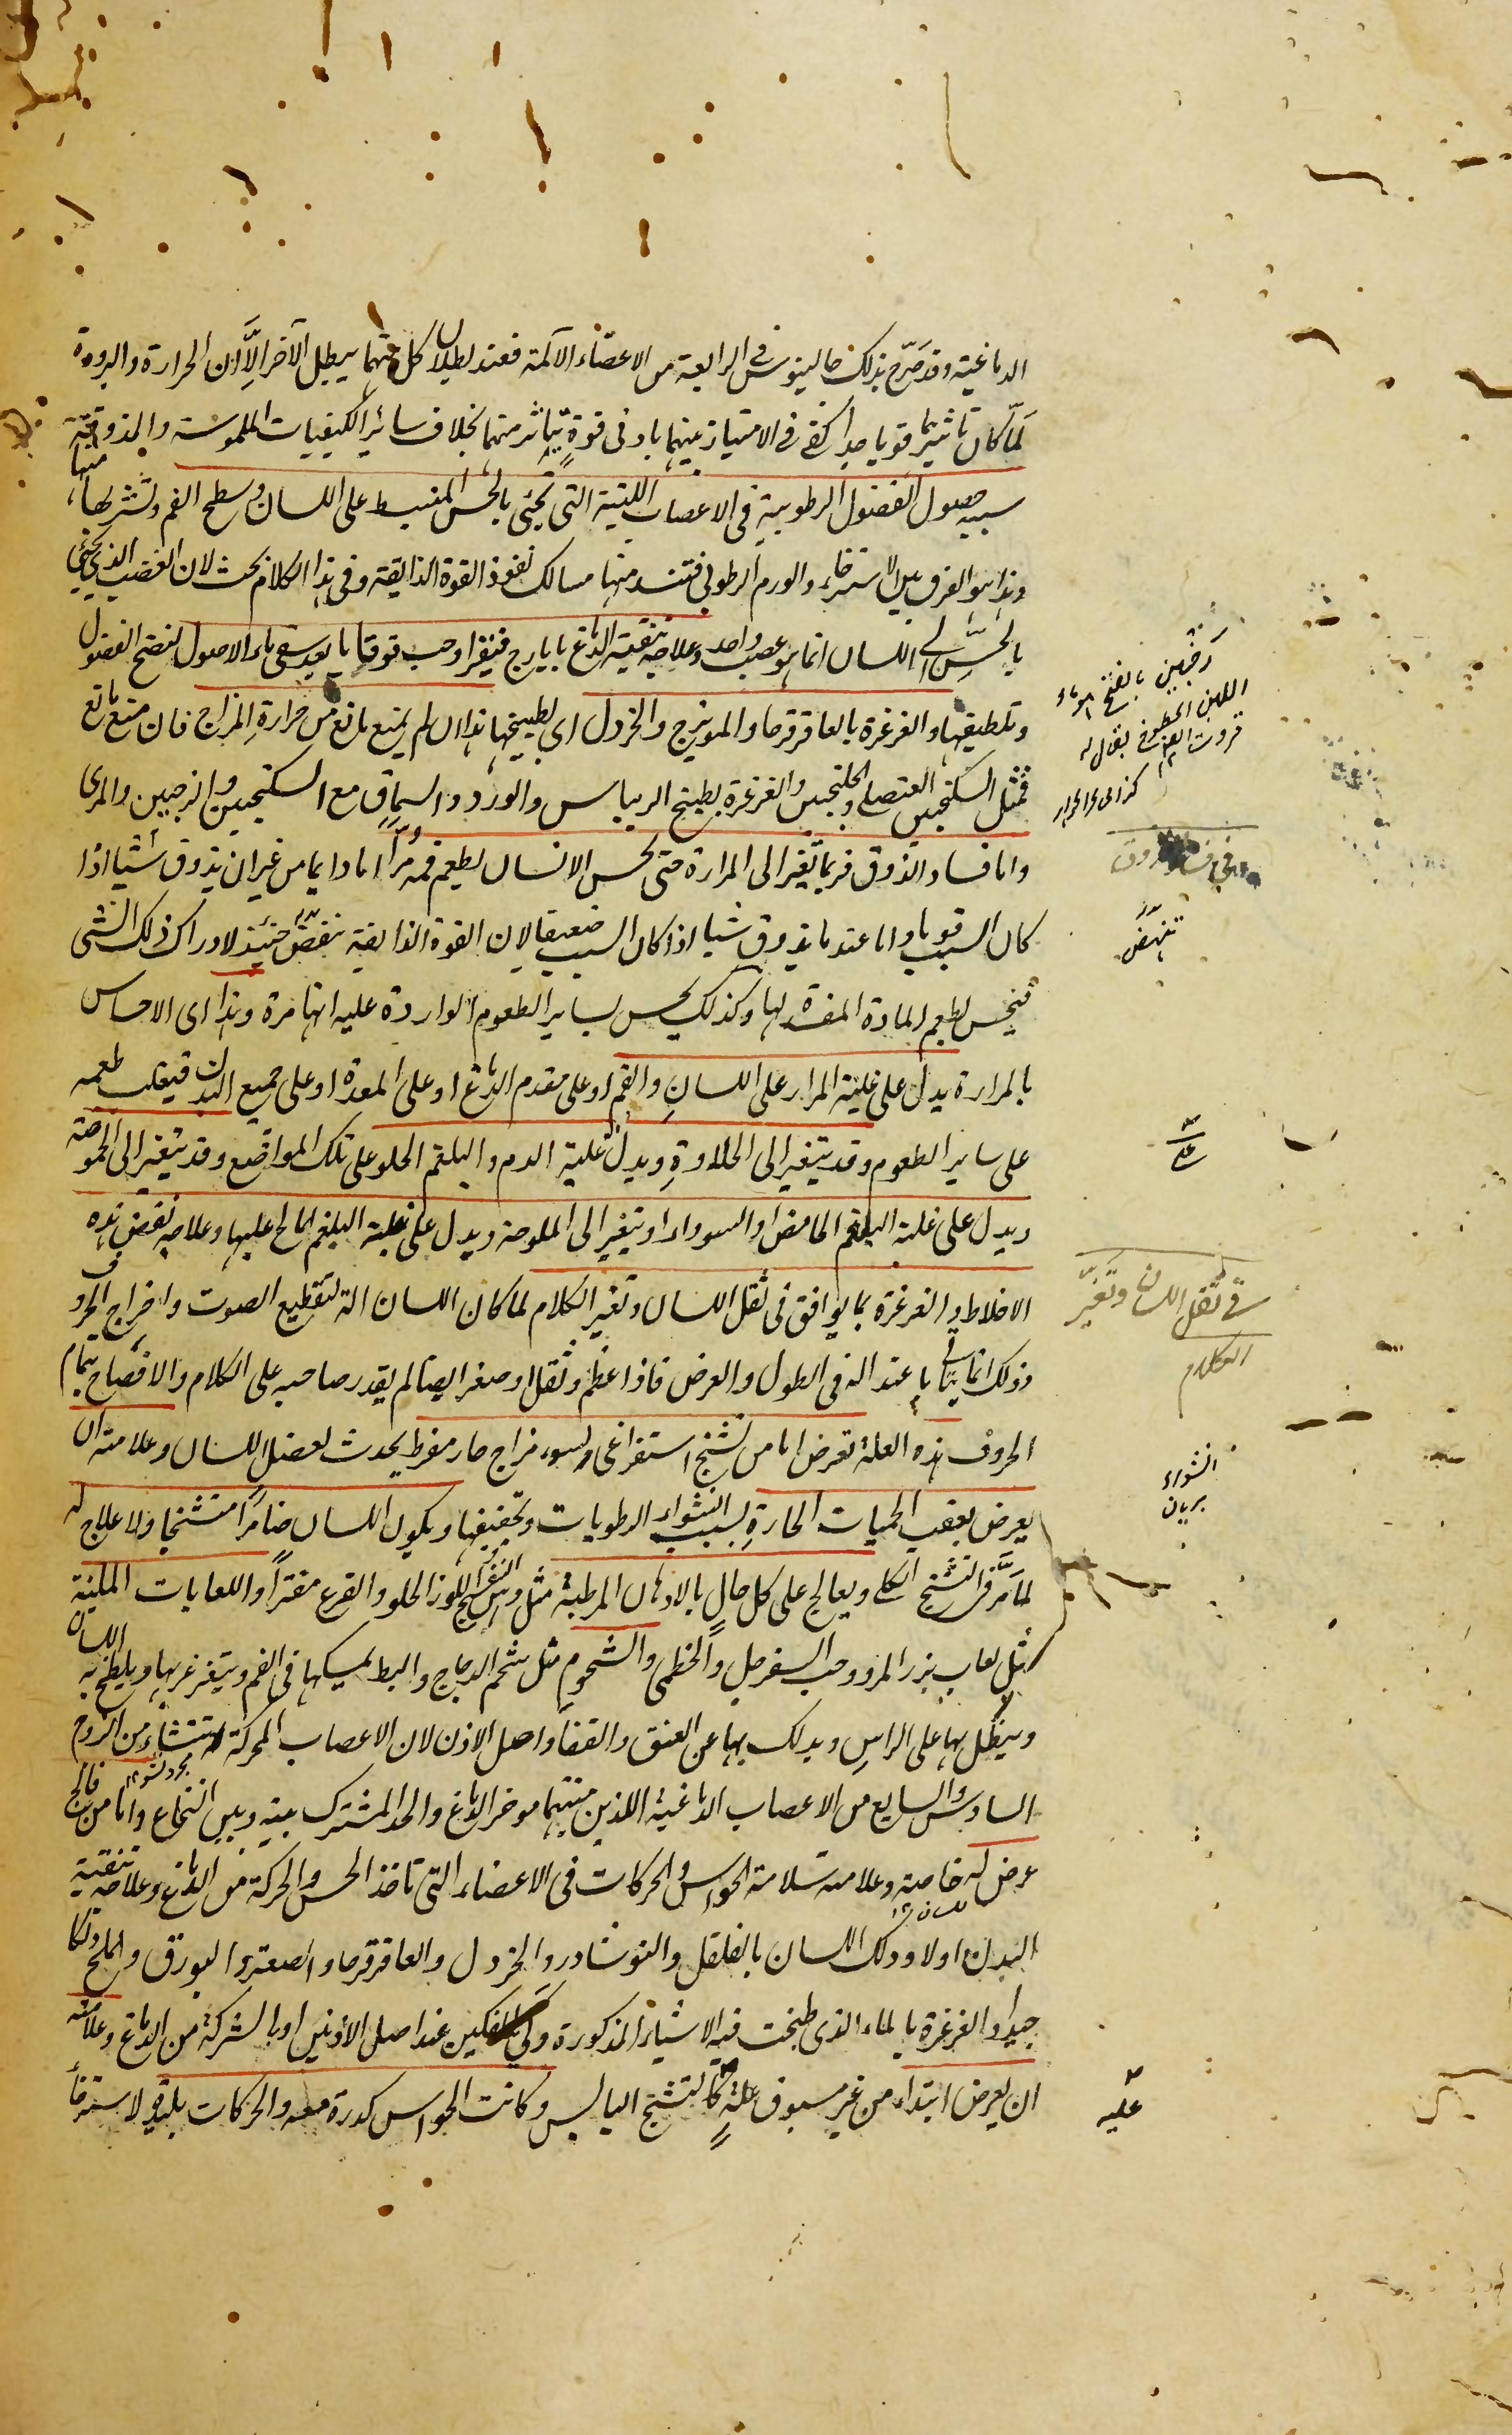 الدماغية وقد صرح بذلك جالينوس فى الرابعة من الاعضاء الآلمة فعند بطلان كل منهما يبطل الآخر الّا ان الحرارة والبرودة
لمّا كان تاثيرهما قويا جدا كفى فى الامتياز بينهما بادنى قوة يتاثر منهما بخلاف سائر الكيفيات الملموسة والمذوقة
سببه حصول الفضول الرطوبية فى الاعصاب اللينة التى تجئ بالحس المنبسط على اللسان وسطح الفم وتشربها منها
وهذا هو الفرق بين الاسترخاء والورم الرطوبى فتنسد منها مسالك نفوذ القوة الذايقة وفى هذا الكلام بحث لان العصب الذى يجئ
بالحسّ الى اللسان انما هو عصب واحد وعلاجه تنقية الدماغ بايارج فيقرا وحب قوقايا بعد سقى ماء الاصول لنضج الفضول
وتلطيفها والغرغرة بالعاقرقرحا والمويزج والخردل اى بطبيخها هذا ان لم يمنع مانع من حرارة المزاج فان منع مانع
فمثل السكنجبين العنصلى والجلنجبين والغرغرة بطبيخ الريباس والورد والسماق مع السكنجبين والترنجبين والمرى
واما فساد الذوق فربما تغير الى المرارة حتى يحس الانسان بطعم فمه مرّا اما دايما من غير ان يذوق شيئا اذا
كان السبب قويا واما عند ما يذوق شيا اذا كان السبب ضعيفا لان القوة الذايقة تنهض حينئذ لادراك ذلك الشئ
فيحس بطعم المادة المفسدة لها وكذلك يحس بساير الطعوم الواردة عليه انها مرة وهذا اى الاحساس
بالمرارة يدل على غلبة المرار على اللسان والفم او على مقدم الدماغ او على المعدة او على جميع البدن فيغلب طعمه
على ساير الطعوم وقد يتغير الى الحلاوة ويدل غلبة الدم والبلغم الحلو على تلك المواضع وقد يتغير الى الحموضة
ويدل على غلبة البلغم الحامض او السوداء او يتغير الى الملوحة ويدل على غلبة البلغم المالح عليها وعلاجه نفض هذه
الاخلاط والغرغرة بما يوافق فى ثقل اللسان وتغير الكلام لما كان اللسان الة لتقطيع الصوت واخراج الحروف
وذلك انما يتاتى باعتداله فى الطول والعرض فاذا عظم وثقل او صغر ايضا لم يقدر صاحبه على الكلام والافصاح بتمام
الحروف هذه العلة تعرض اما من تشنج استفراغى ولسوء مزاج حار مفرط يحدث لعضل اللسان وعلامته ان
يعرض بعقب الحميات الحارة بسبب انشواء الرطوبات وتجفيفها ويكون اللسان ضامرا متشنجا ولا علاج له
لما مرّ فى التشنج الكلى ويعالج على كل حال بالادهان المرطبة مثل دهن البنفسج واللوز الحلو والقرع مفترًا واللعابات الملينة
مثل لعاب بزر المرو وحب السفرجل والخطمى والشحوم مثل شحم الدجاج والبط يمسكها فى الفم ويتغرغر بها ويلطخ به اللسان
وينطل بها على الراس ويدلك بها عن العنق والقفا واصل الاذن لان الاعصاب المحركة له تنشاء من الزوج
السادس والسابع من الاعصاب الدماغية اللذين منبتهما موخر الدماغ والحد المشترك بينه وبين النخاع واما من فالج
عرض له خاصة وعلامته سلامة الحواس والحركات فى الاعضاء التى تاخذ الحس والحركة من الدماغ وعلاجه تنقية
البدن اولا ودلك اللسان بالفلفل والنوشادر والخردل والعاقرقرحا والصعتر والبورق والملح دلكا
جيدا والغرغرة بالماء الذى طبخت فيه الاشياء المذكورة وكى الفكين عند اصل الأذنين او بالشركة من الدماغ وعلامته
ان يعرض ابتداء من غير مسبوق علة كالتشنج اليابس وكانت الحواس كدرة معه والحركات بليدة لاسترخاء
فى فساد الذوق
تنهض
فى ثقل اللسان وتغيّر
الكلام
انشواء
بريان
عليه